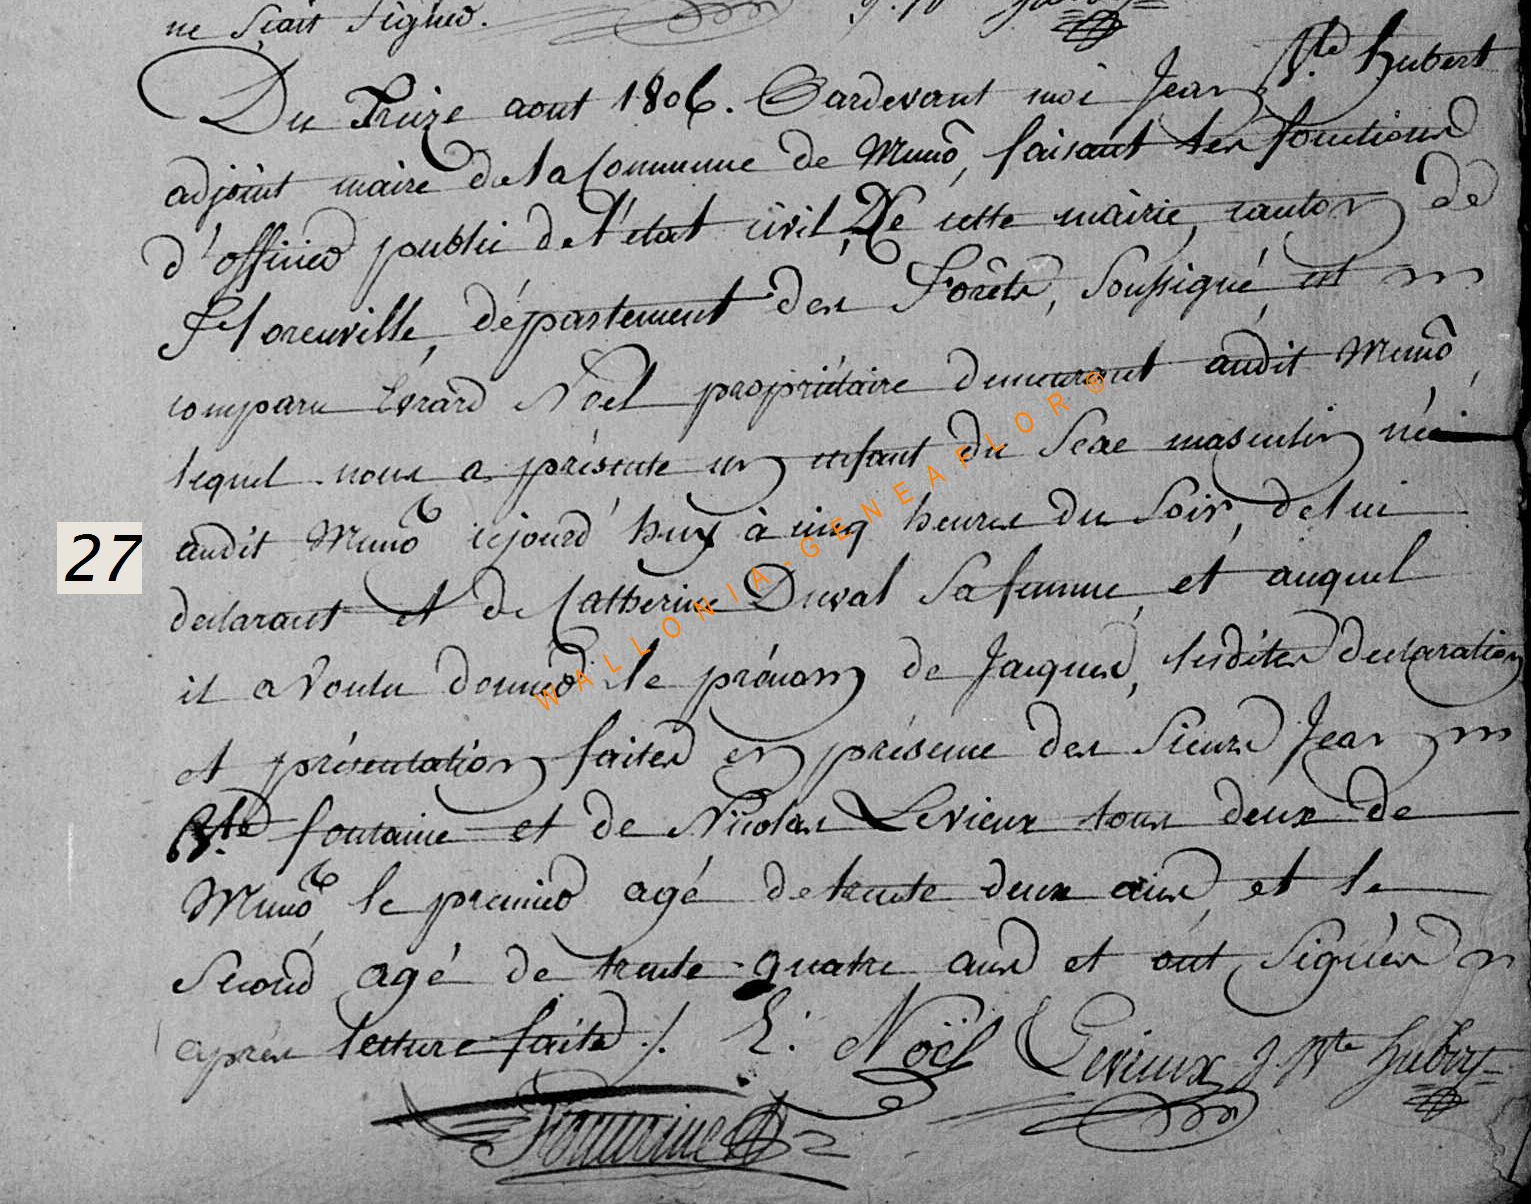 ne sçait signer.
Du Treize aout 1806. Pardevant moi Jean Bte. hubert
adjoint maire de la Commune de Muno, faisant les fonctions
d'officier public de l'état civil De cette mairie, canton de
Florenville, département des Forêts, soussigné, est
comparu Evrard Noël propriétaire demeurant audit Muno,
lequel nous a présenté un enfant du Sexe masculin né
audit Muno cejourd'huy à cinq heures du Soir, de lui
déclarant et de Catherine Duval Sa femme, et auquel
il a voulu donner le prénom de Jacques, lesdites declaration
et présentation faites en présence des Sieurs Jean
Bte. fontaine et de Nicolas Levieux tous deux de
27
Muno, le premier agé de trente deux ans, et le
Second agé de trente-quatre ans et ont Signés
après lecture faite ./. E. Noël Levieux J. Bte hubert
Fontaine
WALLONIA-GENEAFLOR®